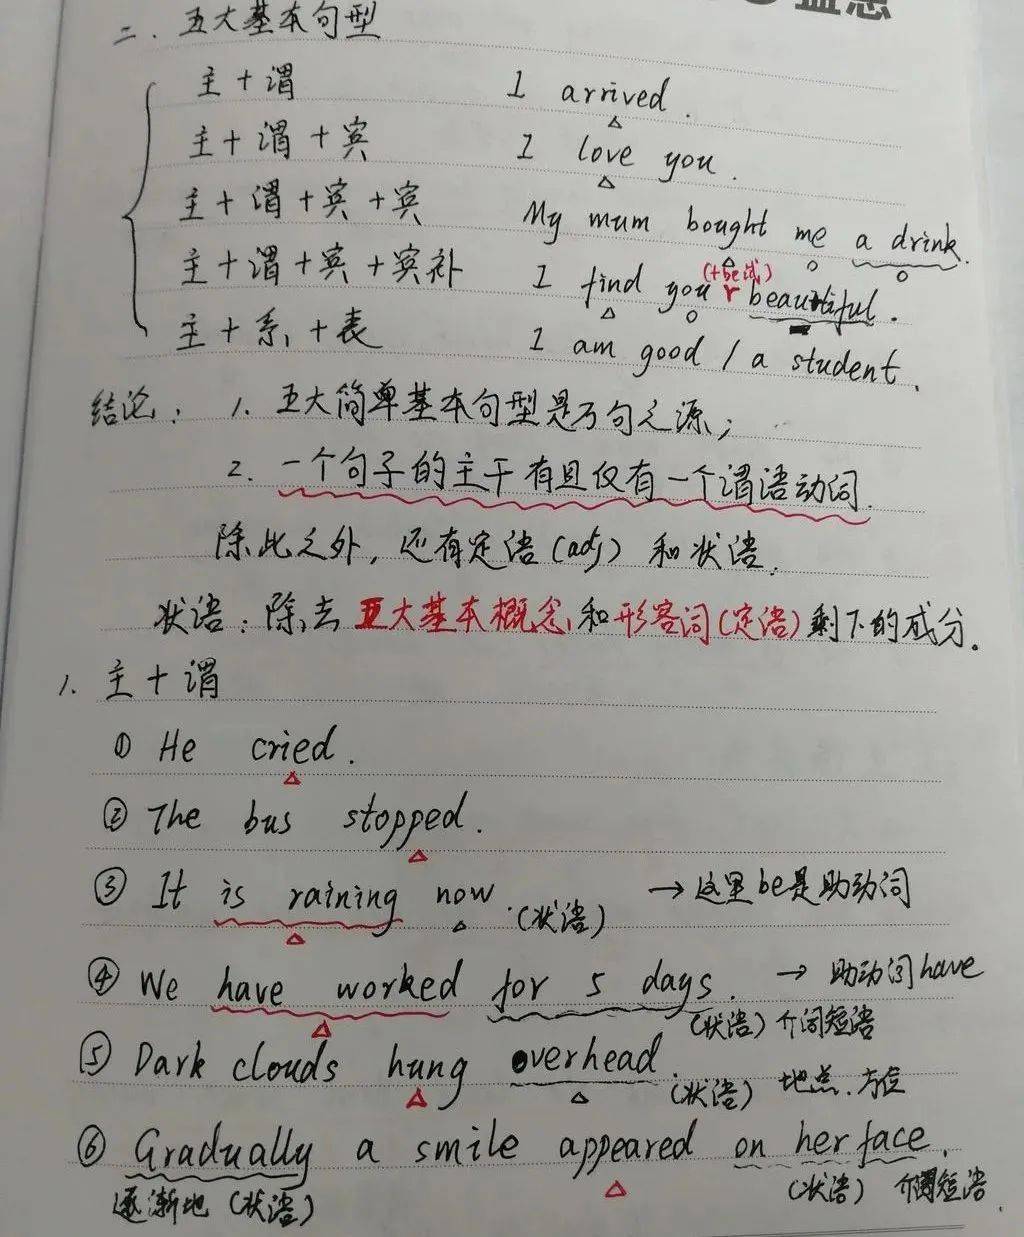 二. 五大基本句型
主+谓 I arrived.
主+谓+宾 I love you.
主+谓+宾+宾 My mum bought me a drink.
(+be试)
主+谓+宾+宾补 I find you beautiful.
主+系+表 I am good / a student.
结论: 1. 五大简单基本句型是万句之源;
2. 一个句子的主干有且仅有一个谓语动词.
除此之外, 还有定语(adj) 和状语.
状语: 除去五大基本概念和形容词(定语)剩下的成分。
1. 主+谓
① He cried.
② The bus stopped.
③ It is raining now. (状语) → 这里be是助动词
④ We have worked for 5 days. → 助动词have
(状语) 介词短语
⑤ Dark clouds hung overhead. (状语) 地点.方位
⑥ Gradually a smile appeared on her face.
逐渐地 (状语) (状语) 介词短语.